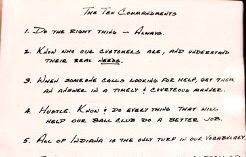 THE TEN COMMANDMENTS
1. DO THE RIGHT THING – ALWAYS.
2. KNOW WHO OUR CUSTOMERS ARE, AND UNDERSTAND
THEIR REAL NEEDS.
3. WHEN SOMEONE CALLS LOOKING FOR HELP, GET THEM
AN ANSWER IN A TIMELY & COURTEOUS MANNER.
4. HUSTLE. KNOW & DO EVERYTHING THAT WILL
HELP OUR BALL CLUB DO A BETTER JOB.
5. ALL OF INDIANA IS THE ONLY TURF IN OUR VOCABULARY.